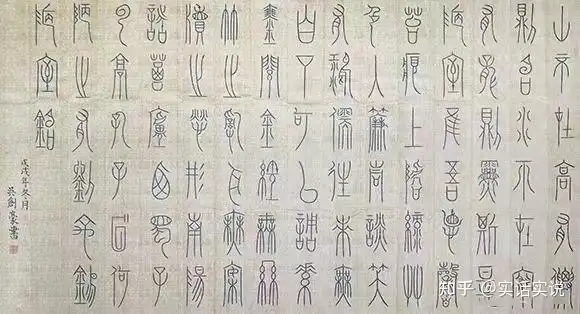 山不在高有僊
則名水不在深
有龍則靈斯是
陋室惟吾德馨
苔痕上階綠艸
色入簾青談笑
有鴻儒往來無
白丁可以調素
琴閱金經無絲
竹之亂耳無案
牘之勞形南陽
諸葛廬西蜀子
云亭孔子云何
陋之有劉禹錫
陋室銘
戊戌年冬月
知乎 @实话实说